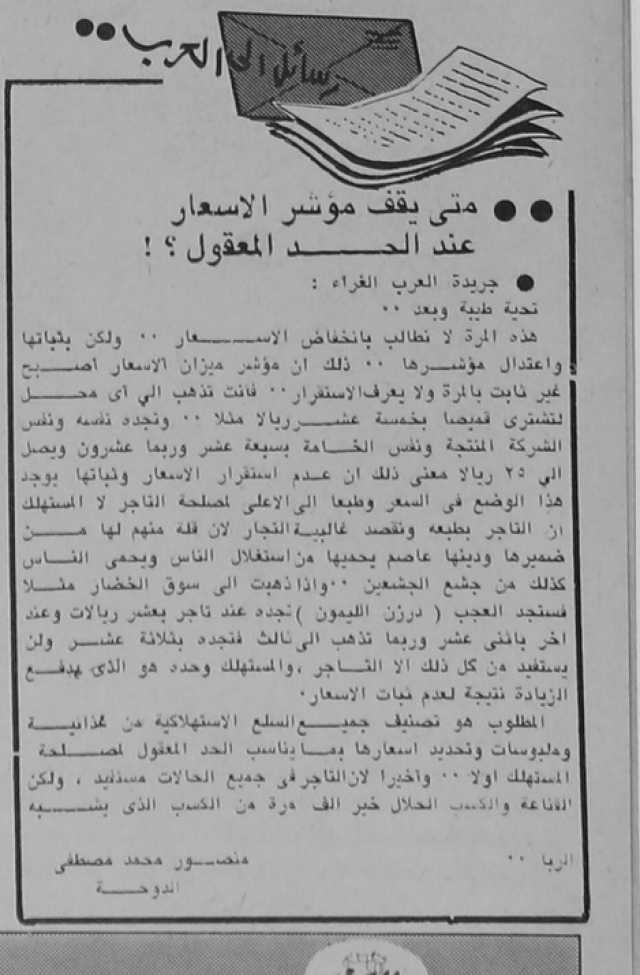 رسائل الى العرب ..
●● متى يقف مؤشر الاسعار
عند الحد المعقول ؟ !
● جريدة العرب الغراء :
تحية طيبة وبعد ..
هذه المرة لا نطالب بانخفاض الاسعار .. ولكن بثباتها
واعتدال مؤشرها .. ذلك ان مؤشر ميزان الاسعار أصبح
غير ثابت بالمرة ولا يعرف الاستقرار .. فانت تذهب الي أى محل
لتشترى قميصا بخمسة عشر ريالا مثلا .. وتجده نفسه ونفس
الشركة المنتجة ونفس الخامة بسبعة عشر وربما عشرون ويصل
الي ٢٥ ريالا معنى ذلك ان عدم استقرار الاسعار وثباتها يوجد
هذا الوضع فى السعر وطبعا الى الاعلى لمصلحة التاجر لا المستهلك
ان التاجر بطبعه ونقصد غالبية التجار لان قلة منهم لها من
ضميرها ودينها عاصم يحميها من استغلال الناس ويحمى الناس
كذلك من جشع الجشعين .. واذا ذهبت الى سوق الخضار مثلا
فستجد العجب ( درزن الليمون ) تجده عند تاجر بعشر ريالات وعند
اخر باثنى عشر وربما تذهب الى ثالث فتجده بثلاثة عشر ولن
يستفيد من كل ذلك الا التاجر ، والمستهلك وحده هو الذى يدفع
الزيادة نتيجة لعدم ثبات الاسعار .
المطلوب هو تصنيف جميع السلع الاستهلاكية من غذائية
وملبوسات وتحديد اسعارها بما يناسب الحد المعقول لمصلحة
المستهلك اولا .. وأخيرا لان التاجر فى جميع الحالات مستفيد ، ولكن
القناعة والكسب الحلال خير الف مرة من الكسب الذى يشبه
الربا ..
منصور محمد مصطفى
الدوحة